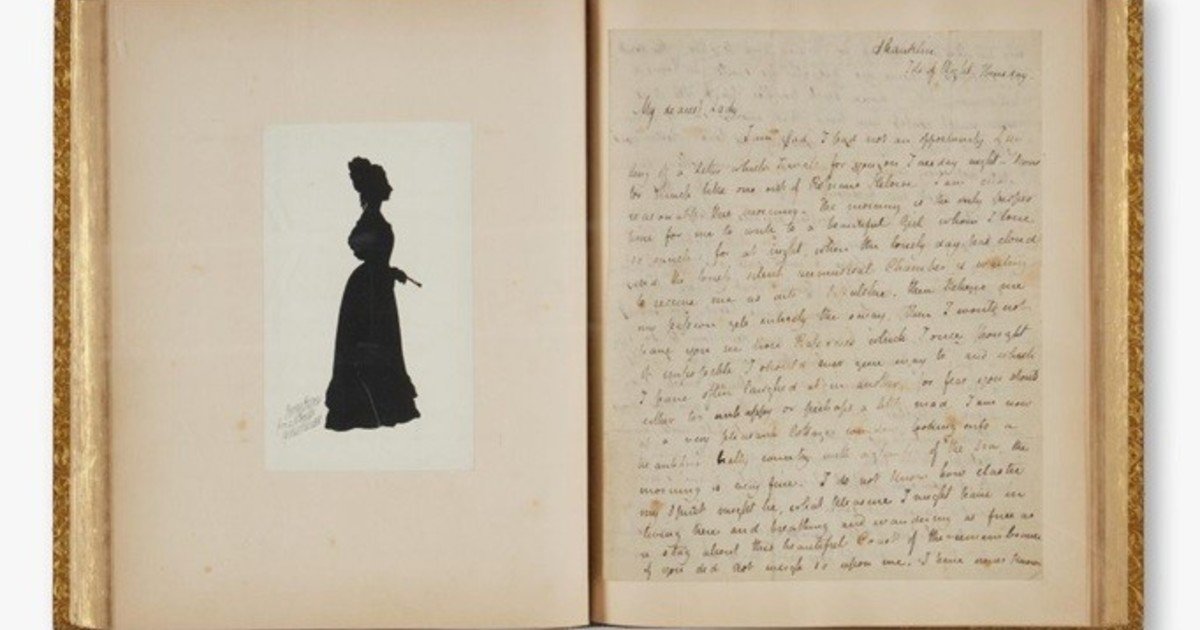 Shanklin
Isle of Wight Thursday
My dearest Lady
I am glad I had not an opportunity of sen
ding off a Letter which I wrote for you on Tuesday night - 'twas
too much like one out of Heloise. I am
reasonable this morning. The morning is the only proper
time for me to write to a beautiful Girl whom I love
so much: for at night, when the lonely day has closed
and the lonely silent unmusical Chamber is waiting
to receive me as into a Sepulchre, then believe me
my passion gets entirely the sway, then I would not
have you see those Rapsodies which I once thought
it impossible I should ever give way to, and which
I have often laughed at in another, for fear you should
either too unhappy or perhaps a little mad. I am now
at a very pleasant Cottage window, looking onto a
beautiful hilly country with a glimpse of the sea; the
morning is very fine. I do not know how elastic
my spirit might be, what pleasure I might have in
living here and breathing and wandering as free as
a stag about this beautiful Coast if the remembrance
of you did not weigh so upon me. I have never known